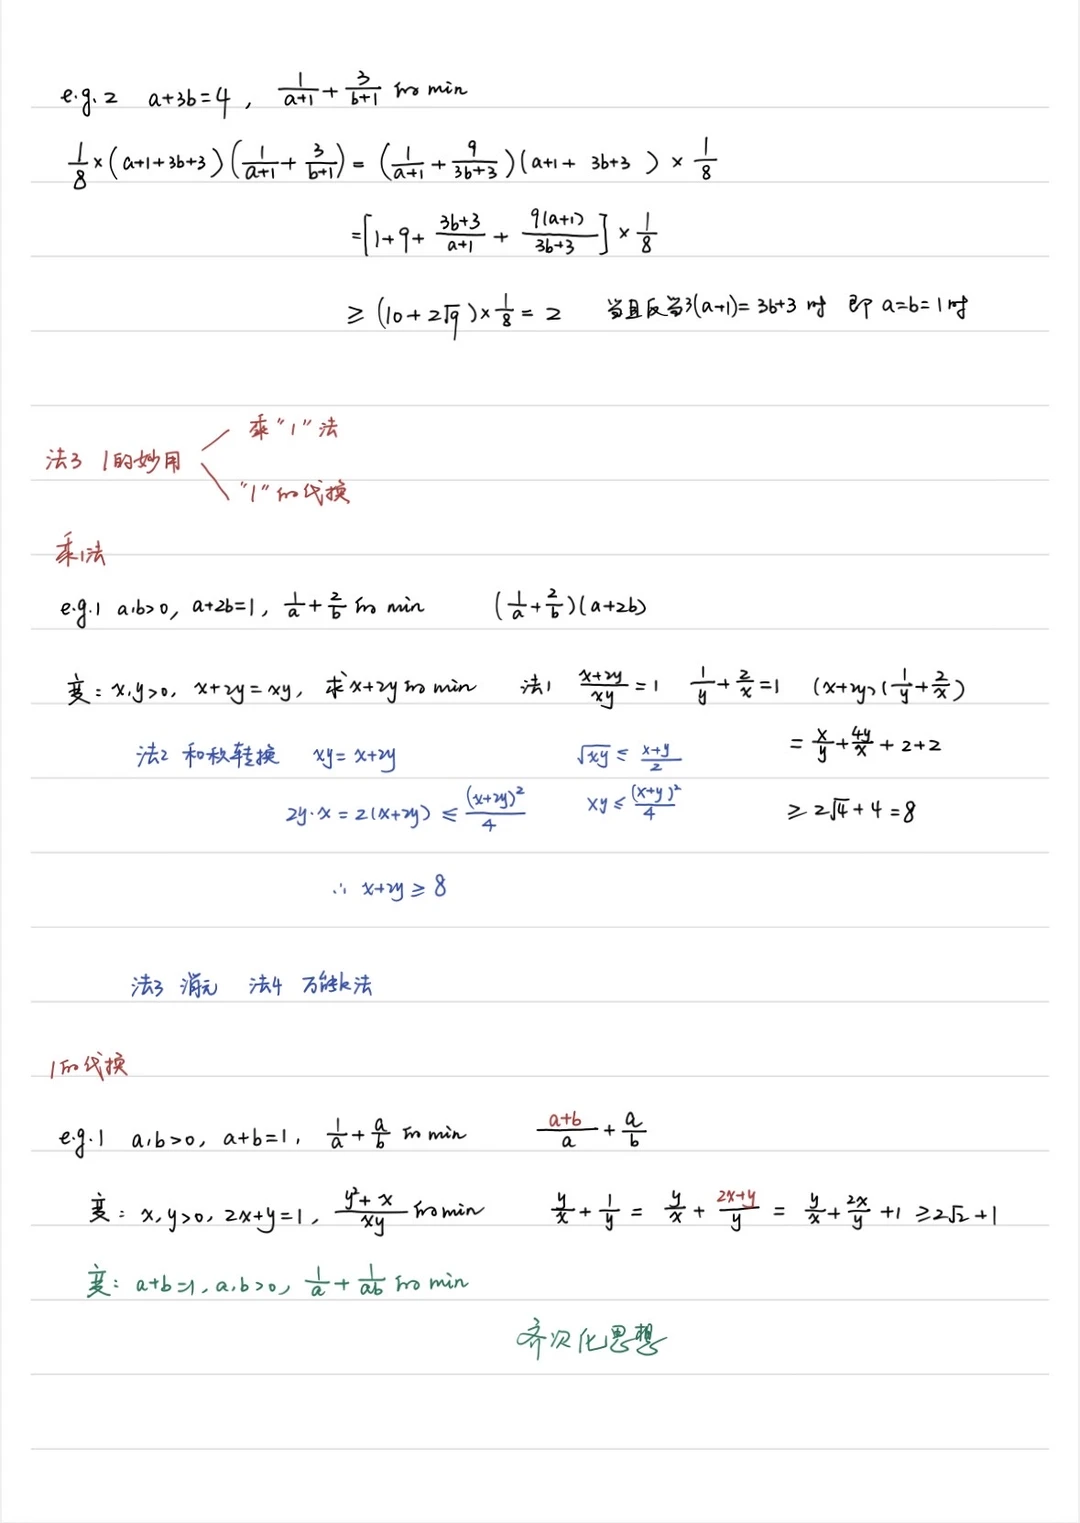 e.g.2 a+3b=4, 1/(a+1) + 3/(b+1) 的 min
1/8 × (a+1+3b+3)(1/(a+1) + 3/(b+1)) = (1/(a+1) + 9/(3b+3))(a+1+ 3b+3 ) × 1/8
=[1+9+ (3b+3)/(a+1) + 9(a+1)/(3b+3)] × 1/8
≥ (10+2√9)×1/8 = 2 当且反当3(a+1)=3b+3 时 即 a=b=1时
乘"1"法
法3 1的妙用
"1"的代换
乘1法
e.g.1 a,b>0, a+2b=1, 1/a + 2/b 的 min (1/a + 2/b)(a+2b)
变: x,y>0, x+2y=xy, 求x+2y的min 法1 (x+2y)/xy = 1 1/y + 2/x = 1 (x+2y)(1/y + 2/x)
= x/y + 4y/x + 2+2
法2 和积转换 xy= x+2y √xy ≤ (x+y)/2
2y·x = 2(x+2y) ≤ (x+2y)²/4 xy ≤ (x+y)²/4 ≥ 2√4 + 4 = 8
∴ x+2y ≥ 8
法3 消元 法4 万能k法
1的代换
e.g.1 a,b>0, a+b=1, 1/a + a/b 的 min (a+b)/a + a/b
变: x,y>0, 2x+y=1, (y²+x)/xy 的min y/x + 1/y = y/x + (2x+y)/y = y/x + 2x/y +1 ≥2√2+1
变: a+b=1, a,b>0, 1/a + 1/ab 的 min
齐次化思想